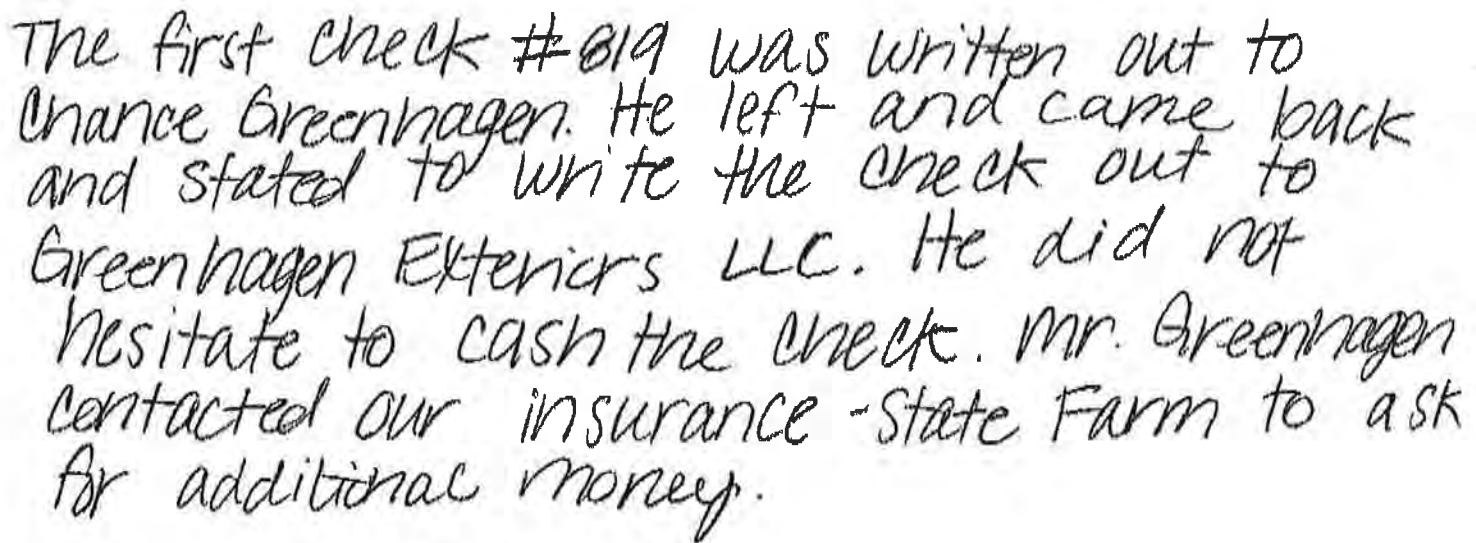 The first check #819 was written out to
Chance Greenhagen. He left and came back
and stated to write the check out to
Greenhagen Exteriors LLC. He did not
hesitate to cash the check. Mr. Greenhagen
contacted our insurance - State Farm to ask
for additional money.